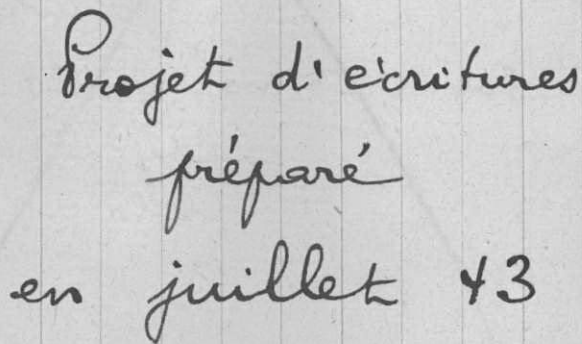 Projet d'écritures
préparé
en juillet 43